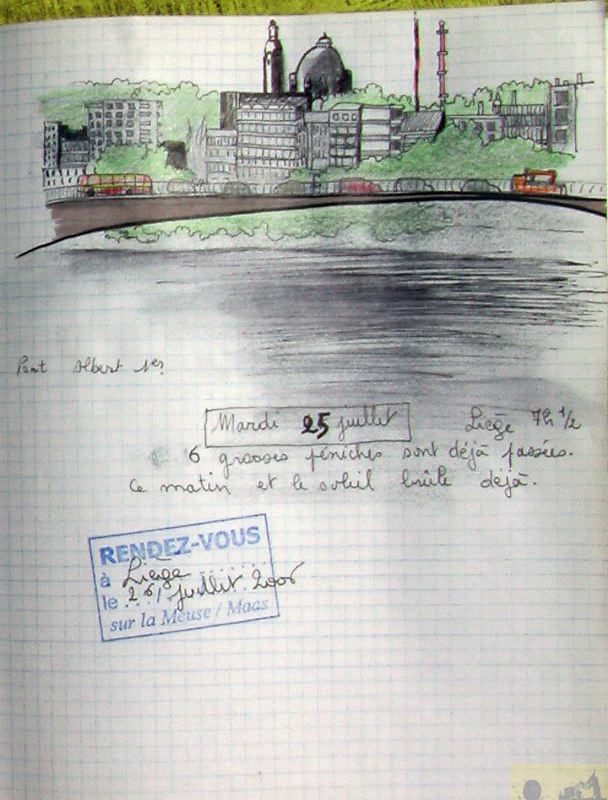 Pont Albert 1er
Mardi 25 juillet
Liège 7h 1/2
6 grosses péniches sont déjà passées.
Ce matin et le soleil brûle déjà.
RENDEZ-VOUS
à Liège
le 26/juillet 2006
sur la Meuse / Maas